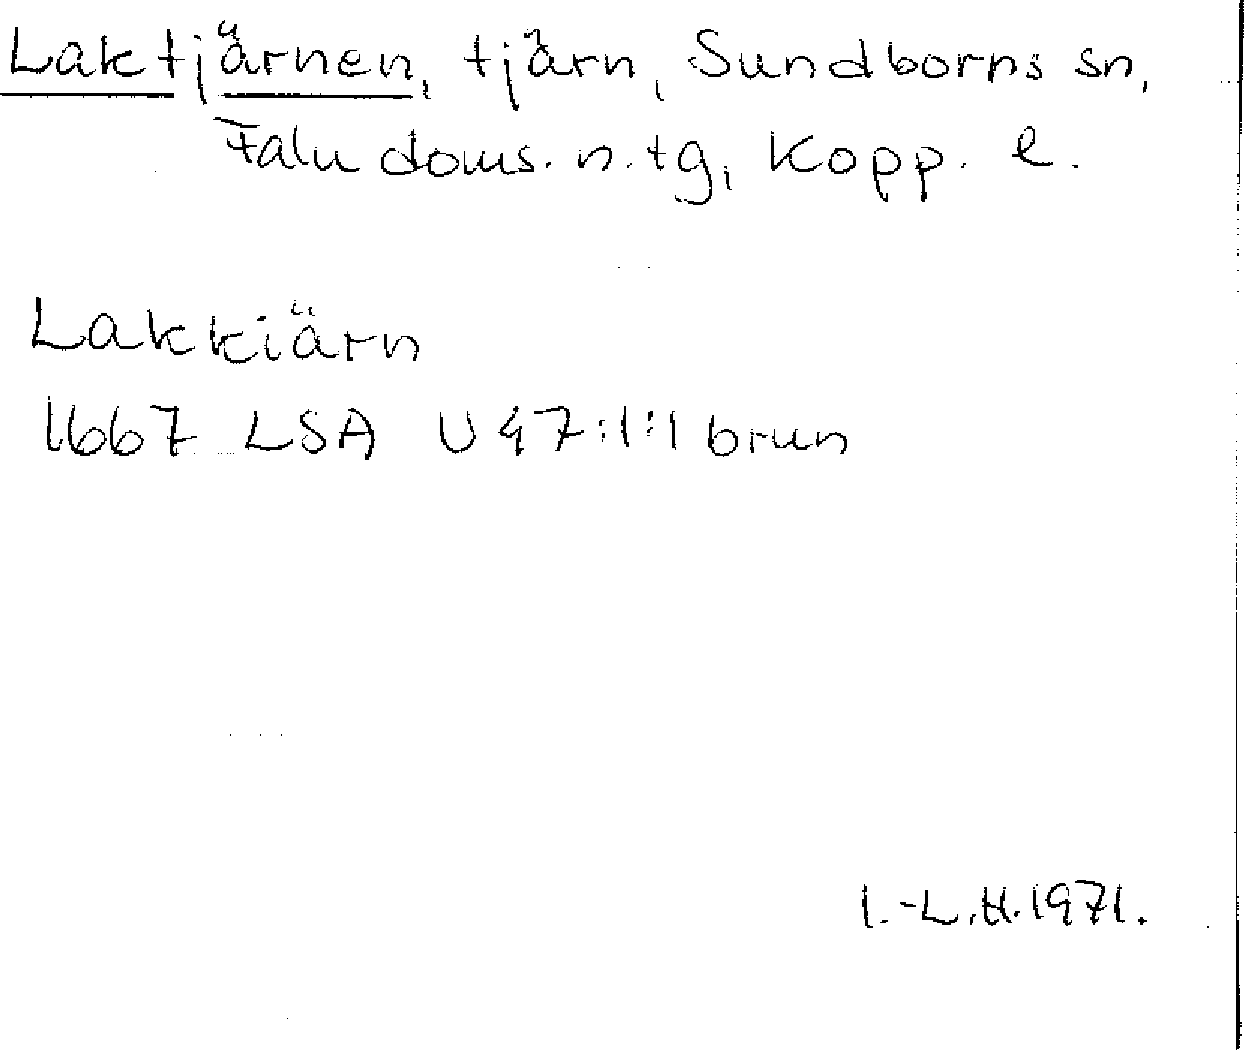 Laktjärnen, tjärn, Sundborns sn,
Falu doms. n. tg, Kopp. l.
Lakkiärn
1667 LSA U 47:1:1 brun
I.-L.H. 1971.